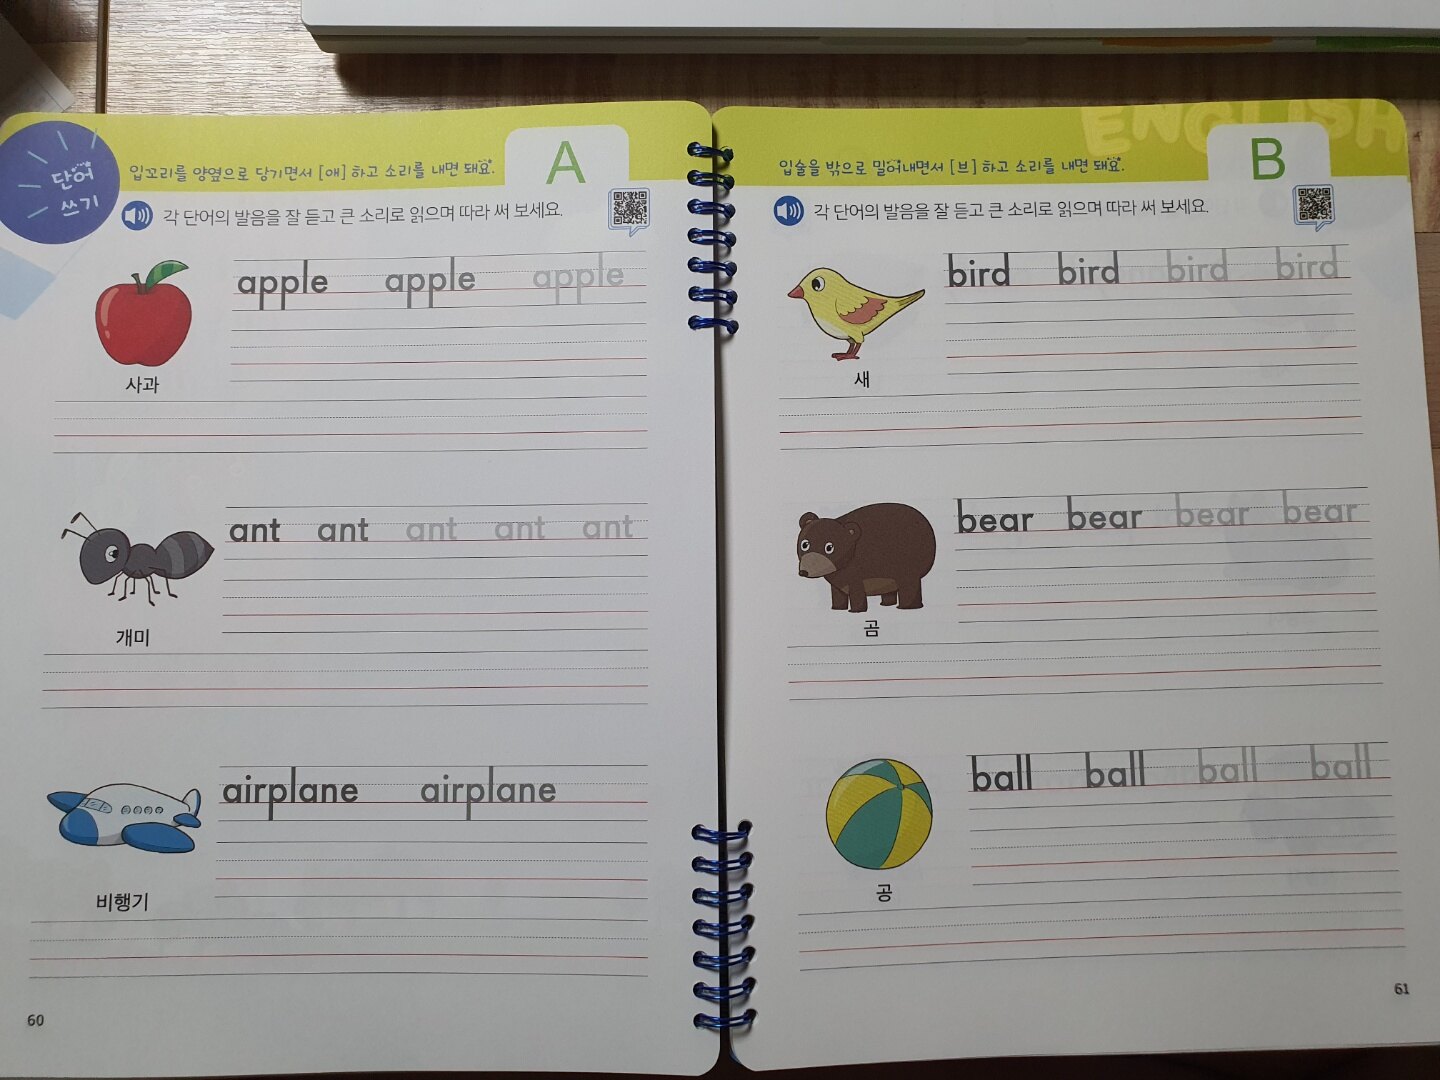 단어
쓰기
입꼬리를 양옆으로 당기면서 [애] 하고 소리를 내면 돼요.
A
각 단어의 발음을 잘 듣고 큰 소리로 읽으며 따라 써 보세요.
apple apple apple
사과
ant ant ant ant ant
개미
airplane airplane
비행기
60
ENGLISH
입술을 밖으로 밀어내면서 [브] 하고 소리를 내면 돼요.
B
각 단어의 발음을 잘 듣고 큰 소리로 읽으며 따라 써 보세요.
bird bird bird bird
새
bear bear bear bear
곰
ball ball ball ball
공
61